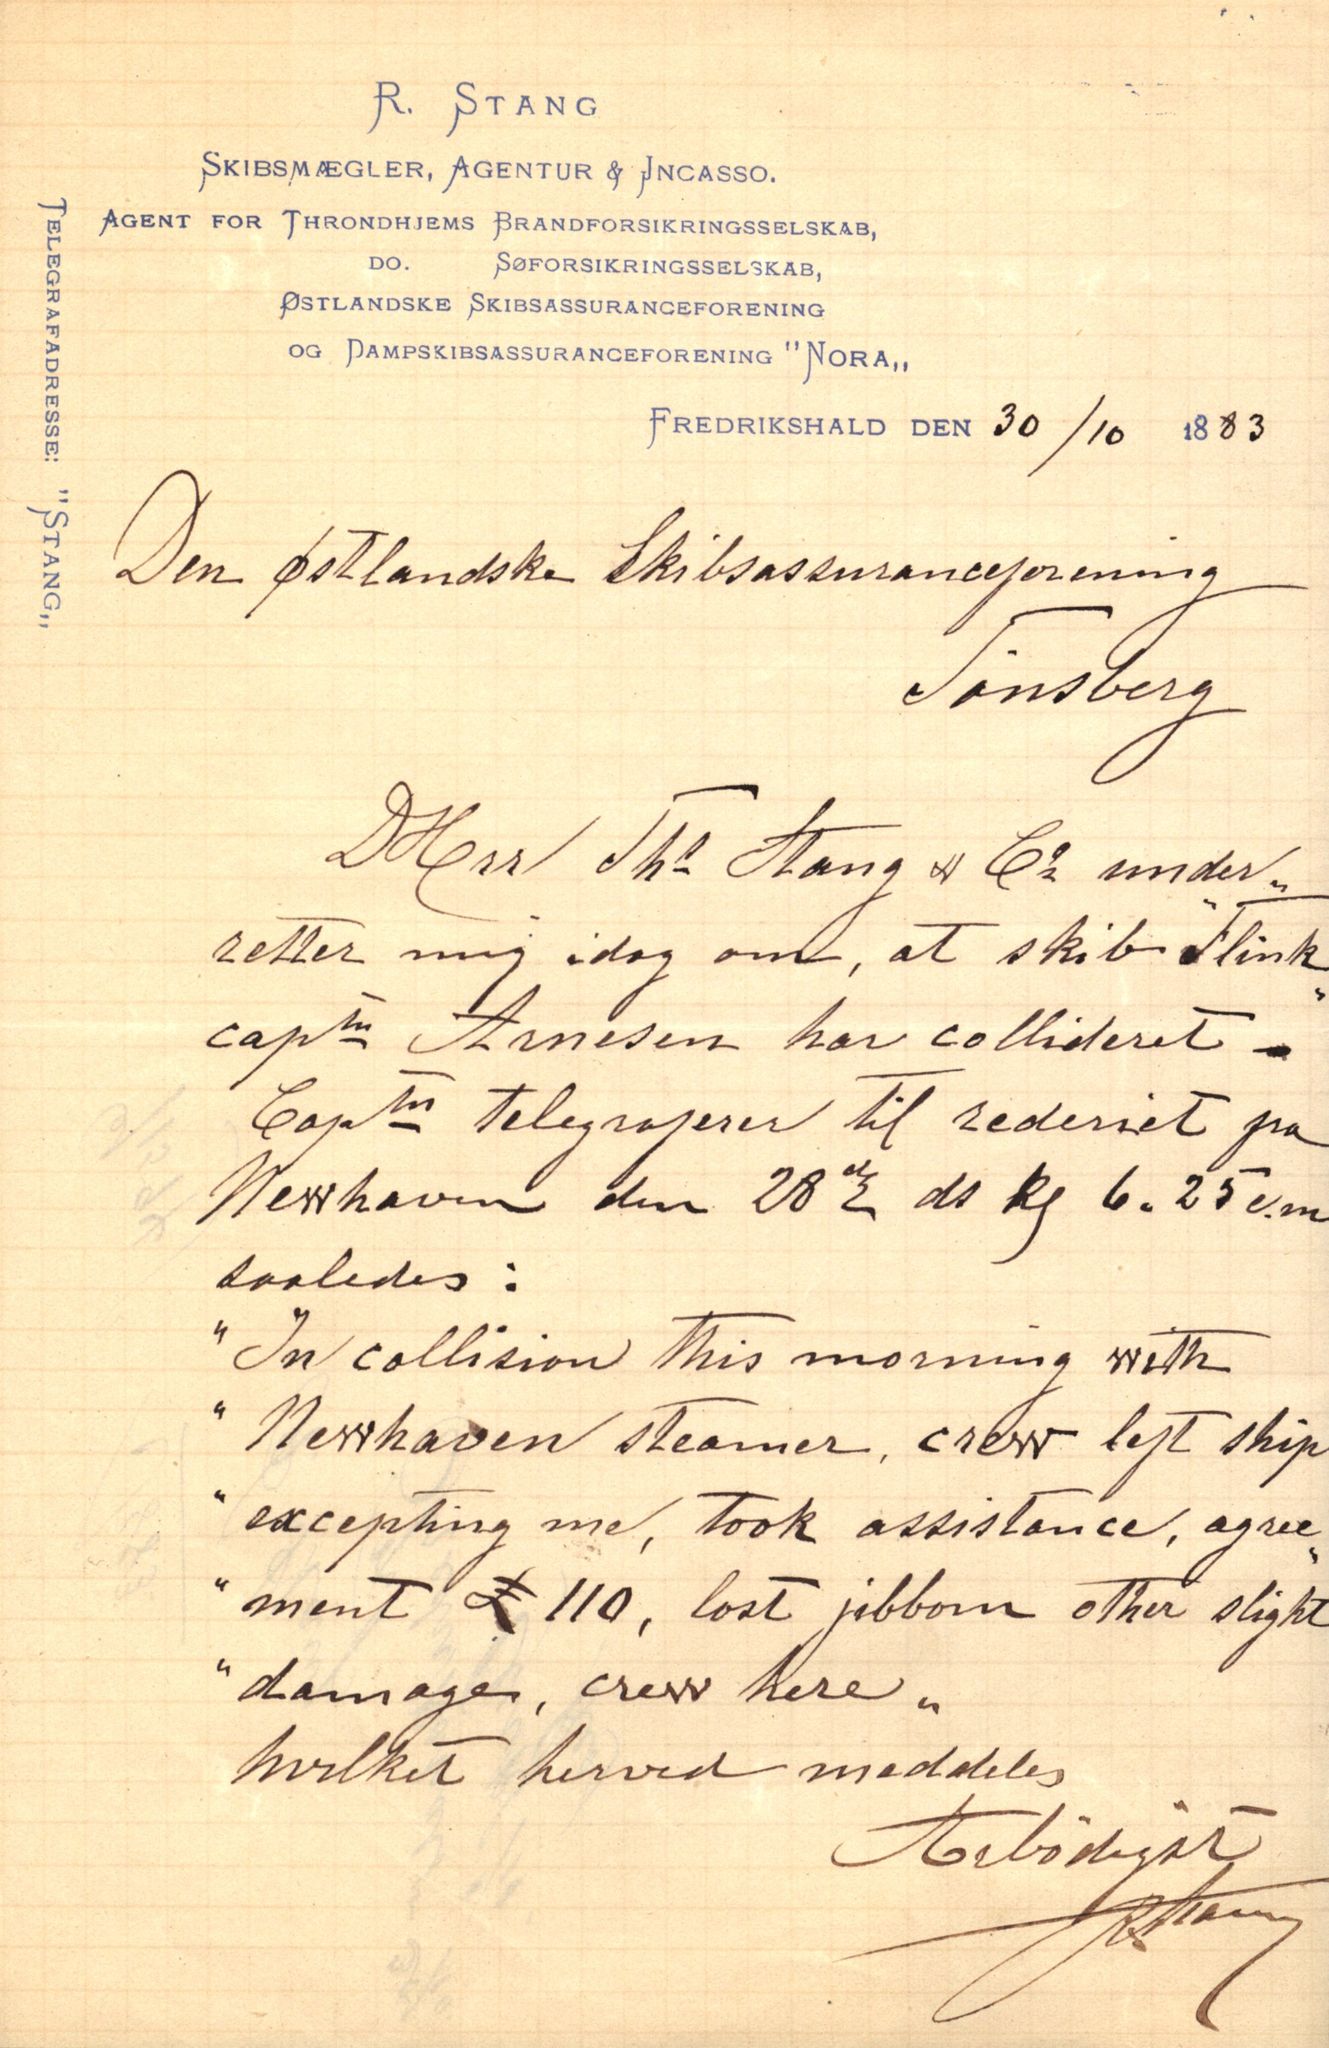 R. STANG
SKIBSMÆGLER, AGENTUR & INCASSO.
AGENT FOR THRONDHJEMS BRANDFORSIKRINGSSELSKAB,
DO. SØFORSIKRINGSSELSKAB,
ØSTLANDSKE SKIBSASSURANCEFORENING
OG DAMPSKIBSASSURANCEFORENING "NORA„
TELEGRAFADRESSE: "STANG„
FREDRIKSHALD DEN 30/10 1883
Den østlandske Skibsassuranceforening
Tönsberg
DHrr Ths Stang & Co under„
retter mig idag om, at skib "Flink"
captn Arnesen har collideret –
Captn telegraferer til rederiet fra
Newhaven den 28de ds Kl 6.25 e.m
saaledes:
"In collision this morning with
" Newhaven steamer, crew left ship
" excepting me, took assistance, agree„
" ment £ 110, lost jibbom other slight
" damages, crew here „
hvilket herved meddeles
Ærbödigst
R Stang